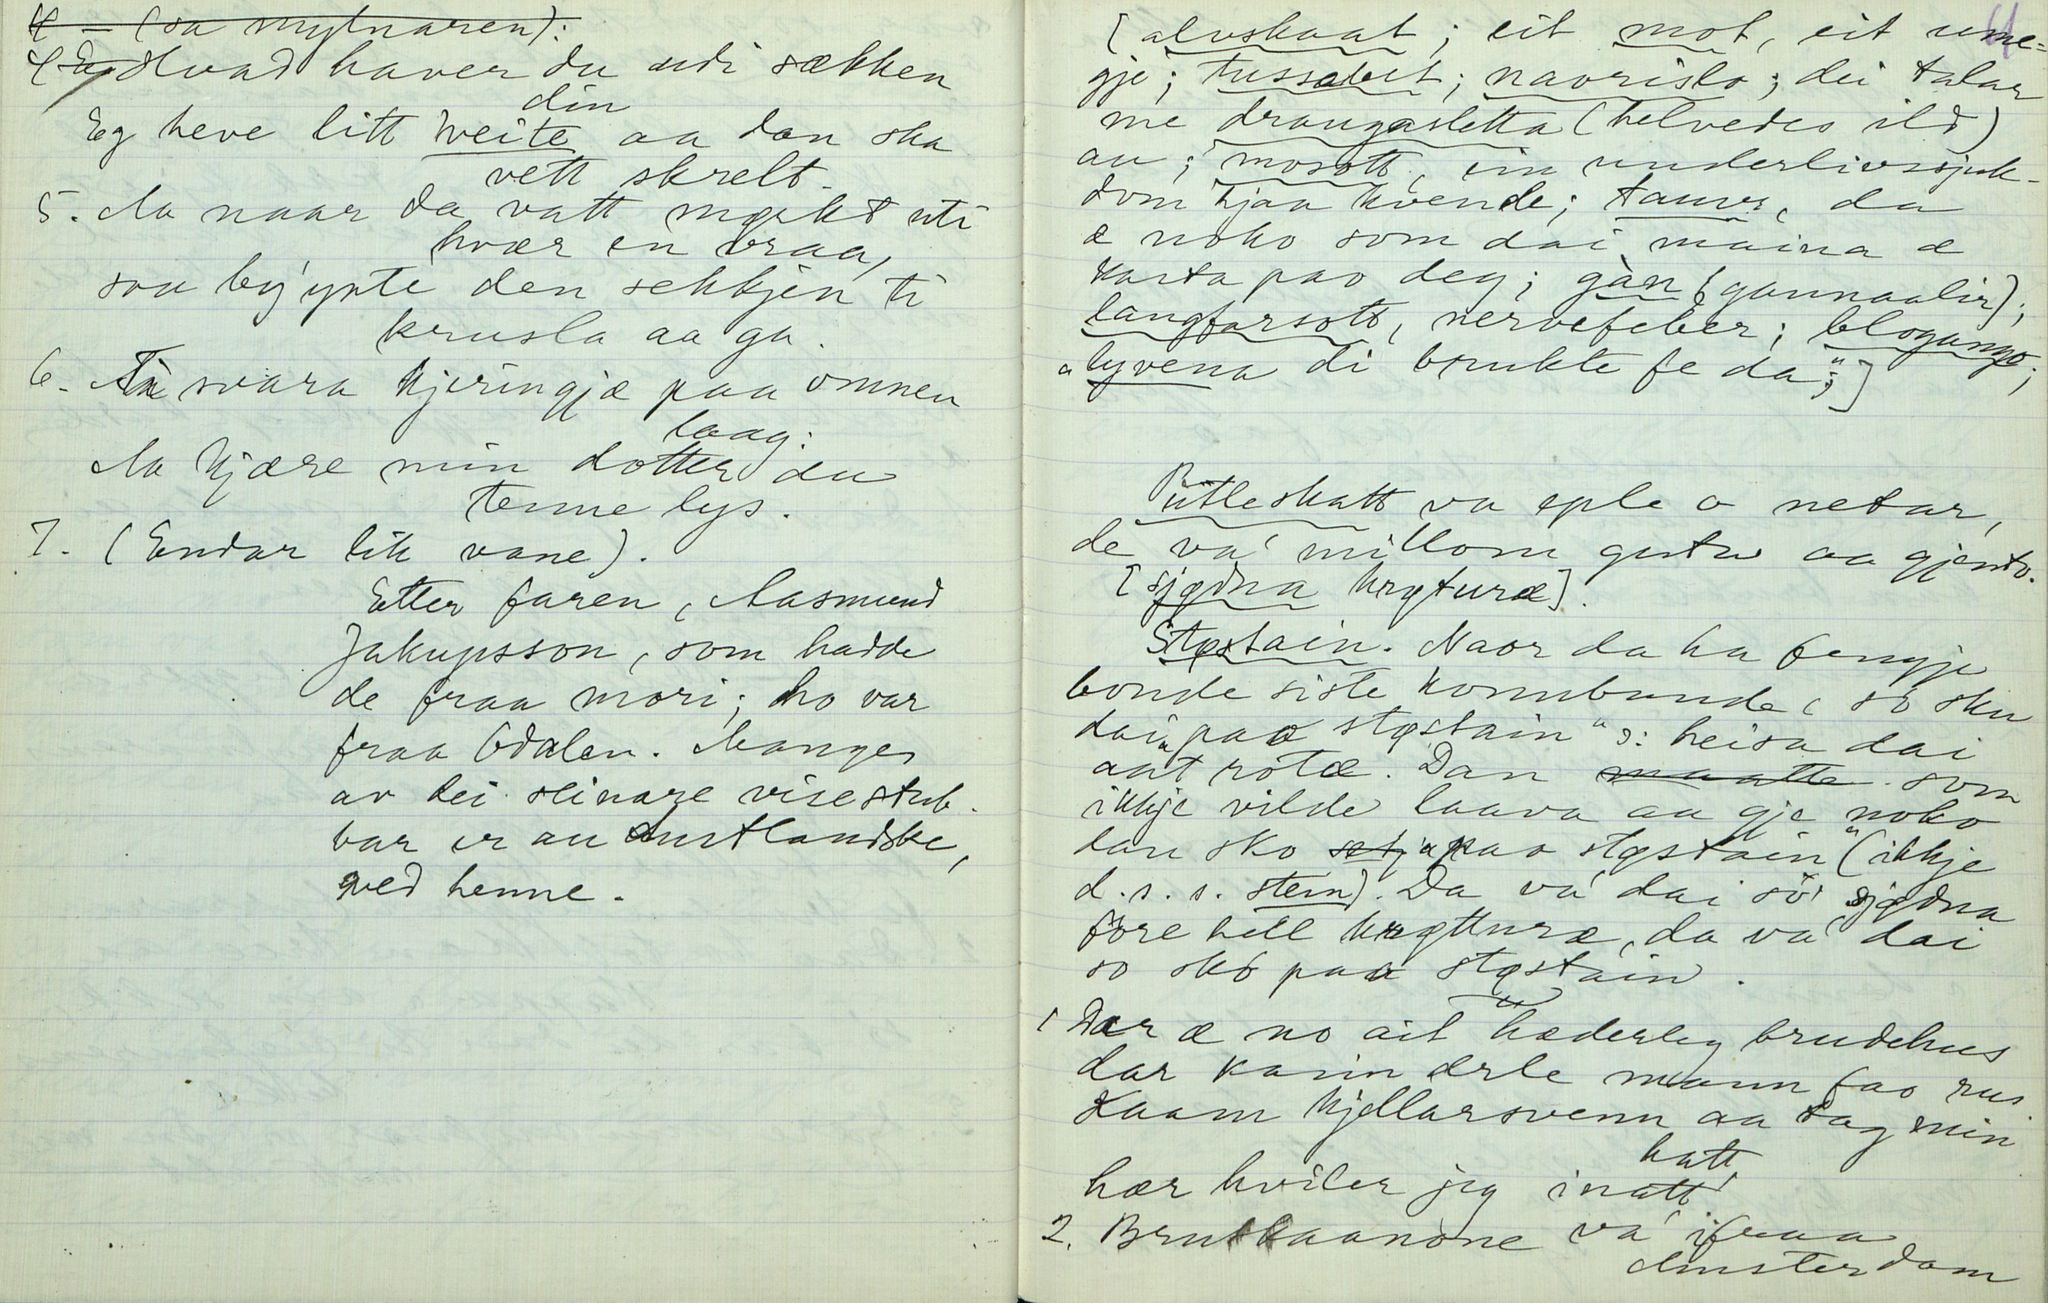 4 – (sa mylnaren):
4 Hvad haver du udi sækken
din
Eg heve litt weite aa dan ska
vett skrelt.
5. Aa naar da vatt myrkt uti
hvær en vraa,
soa byynte den sekkjen ti
krusla aa ga.
6. Ti svara kjeringjæ paa omnen
laag:
Aa kjære min dotter du
tenne lys.
7. (Endar lik vane).
Etter faren, Aasmund
Jakupsson, som hadde
de fraa mori; ho var
fraa Odalen. Mange
av dei seinare visestub-
bar er au austlandske,
ved henne.
[alvskaat; eit mot, eit ume-
gje; tussabit; navrislo; dei talar
me draugasletta (helvedes ild)
au; mosott, ein underlivssjuk-
dom hjaa kvende; taurs, da
æ noko som dai maina æ
kasta pao deg; gàn (gannaalir);
langfarsott, nervefeber; blogango;
"lyvena di brukte fe da";]
Pütleskatt va eple o netar,
de va' millom gutar aa gjento.
[sjødna krøturæ].
Støstain. Naor da ha fengje
bonde siste konnbunde, so sku
dai "pao støstain" ɔ: heisa dai
aat rotæ. Dan maatte som
ikkje vilde laava aa gje noko
dan sko setja pao støstain" (ikkje
d. s. s. stein). Da va' dai so' sjødna
före hell krøtturæ, da va' dai
so sko pao støstain.
1 Dær æ no ait hæderleg brudehus
dar kann ærle mann fao rus.
Kaam kjellarsvenn aa tag min
hatt,
hær hviler jeg inatt
2. Brutkaanone va' ifraa
Amsterdam